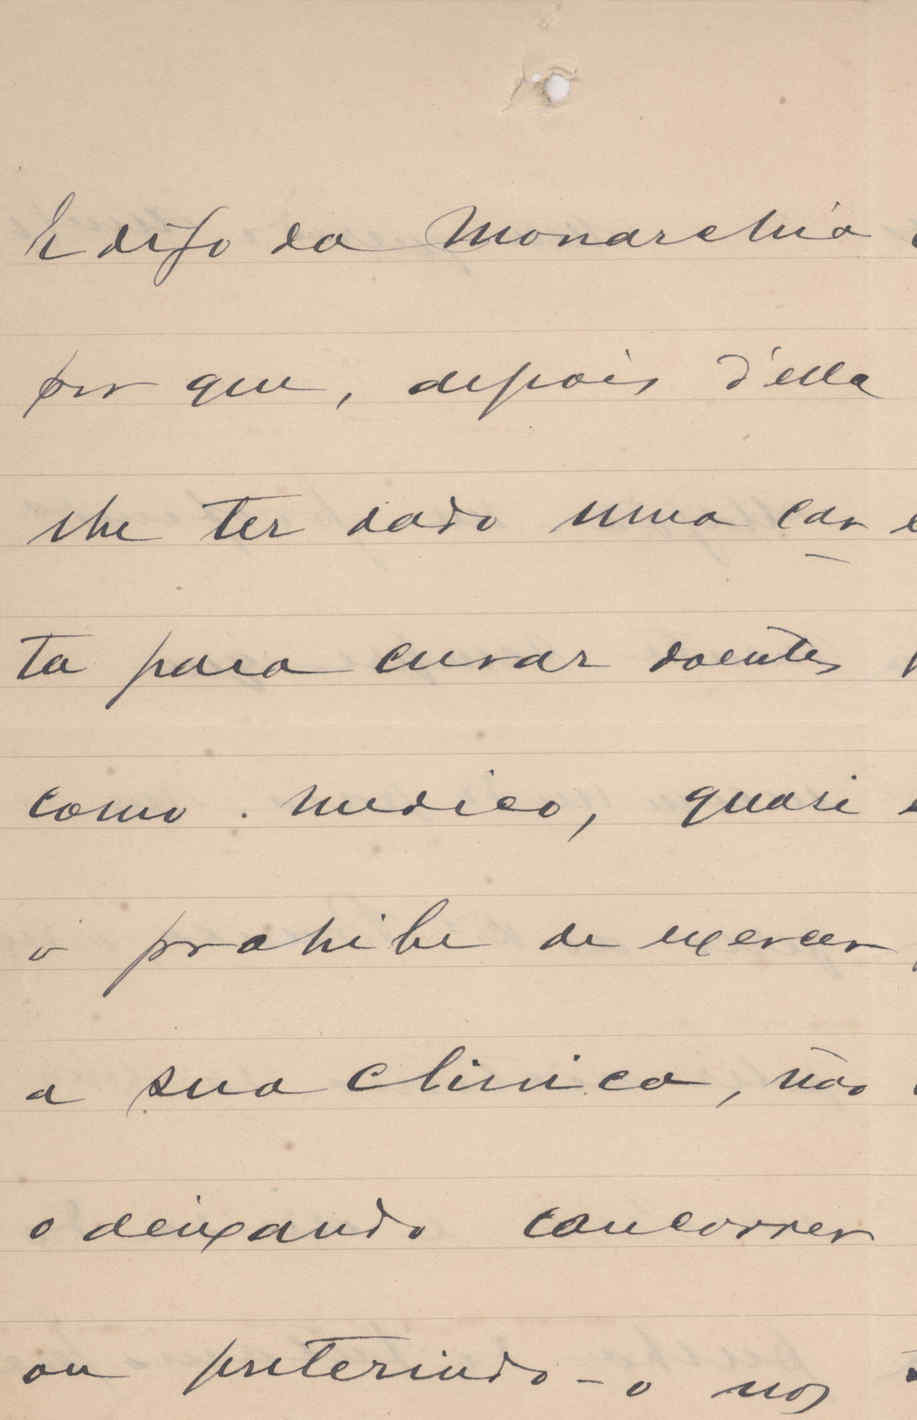 E digo da Monarchia
por que, depois d'ella
lhe ter dado uma car
ta para curar doentes
como medico, quasi
o prohibe de exercer
a sua clinica, não
o deixando concorrer
ou preterindo-o nos